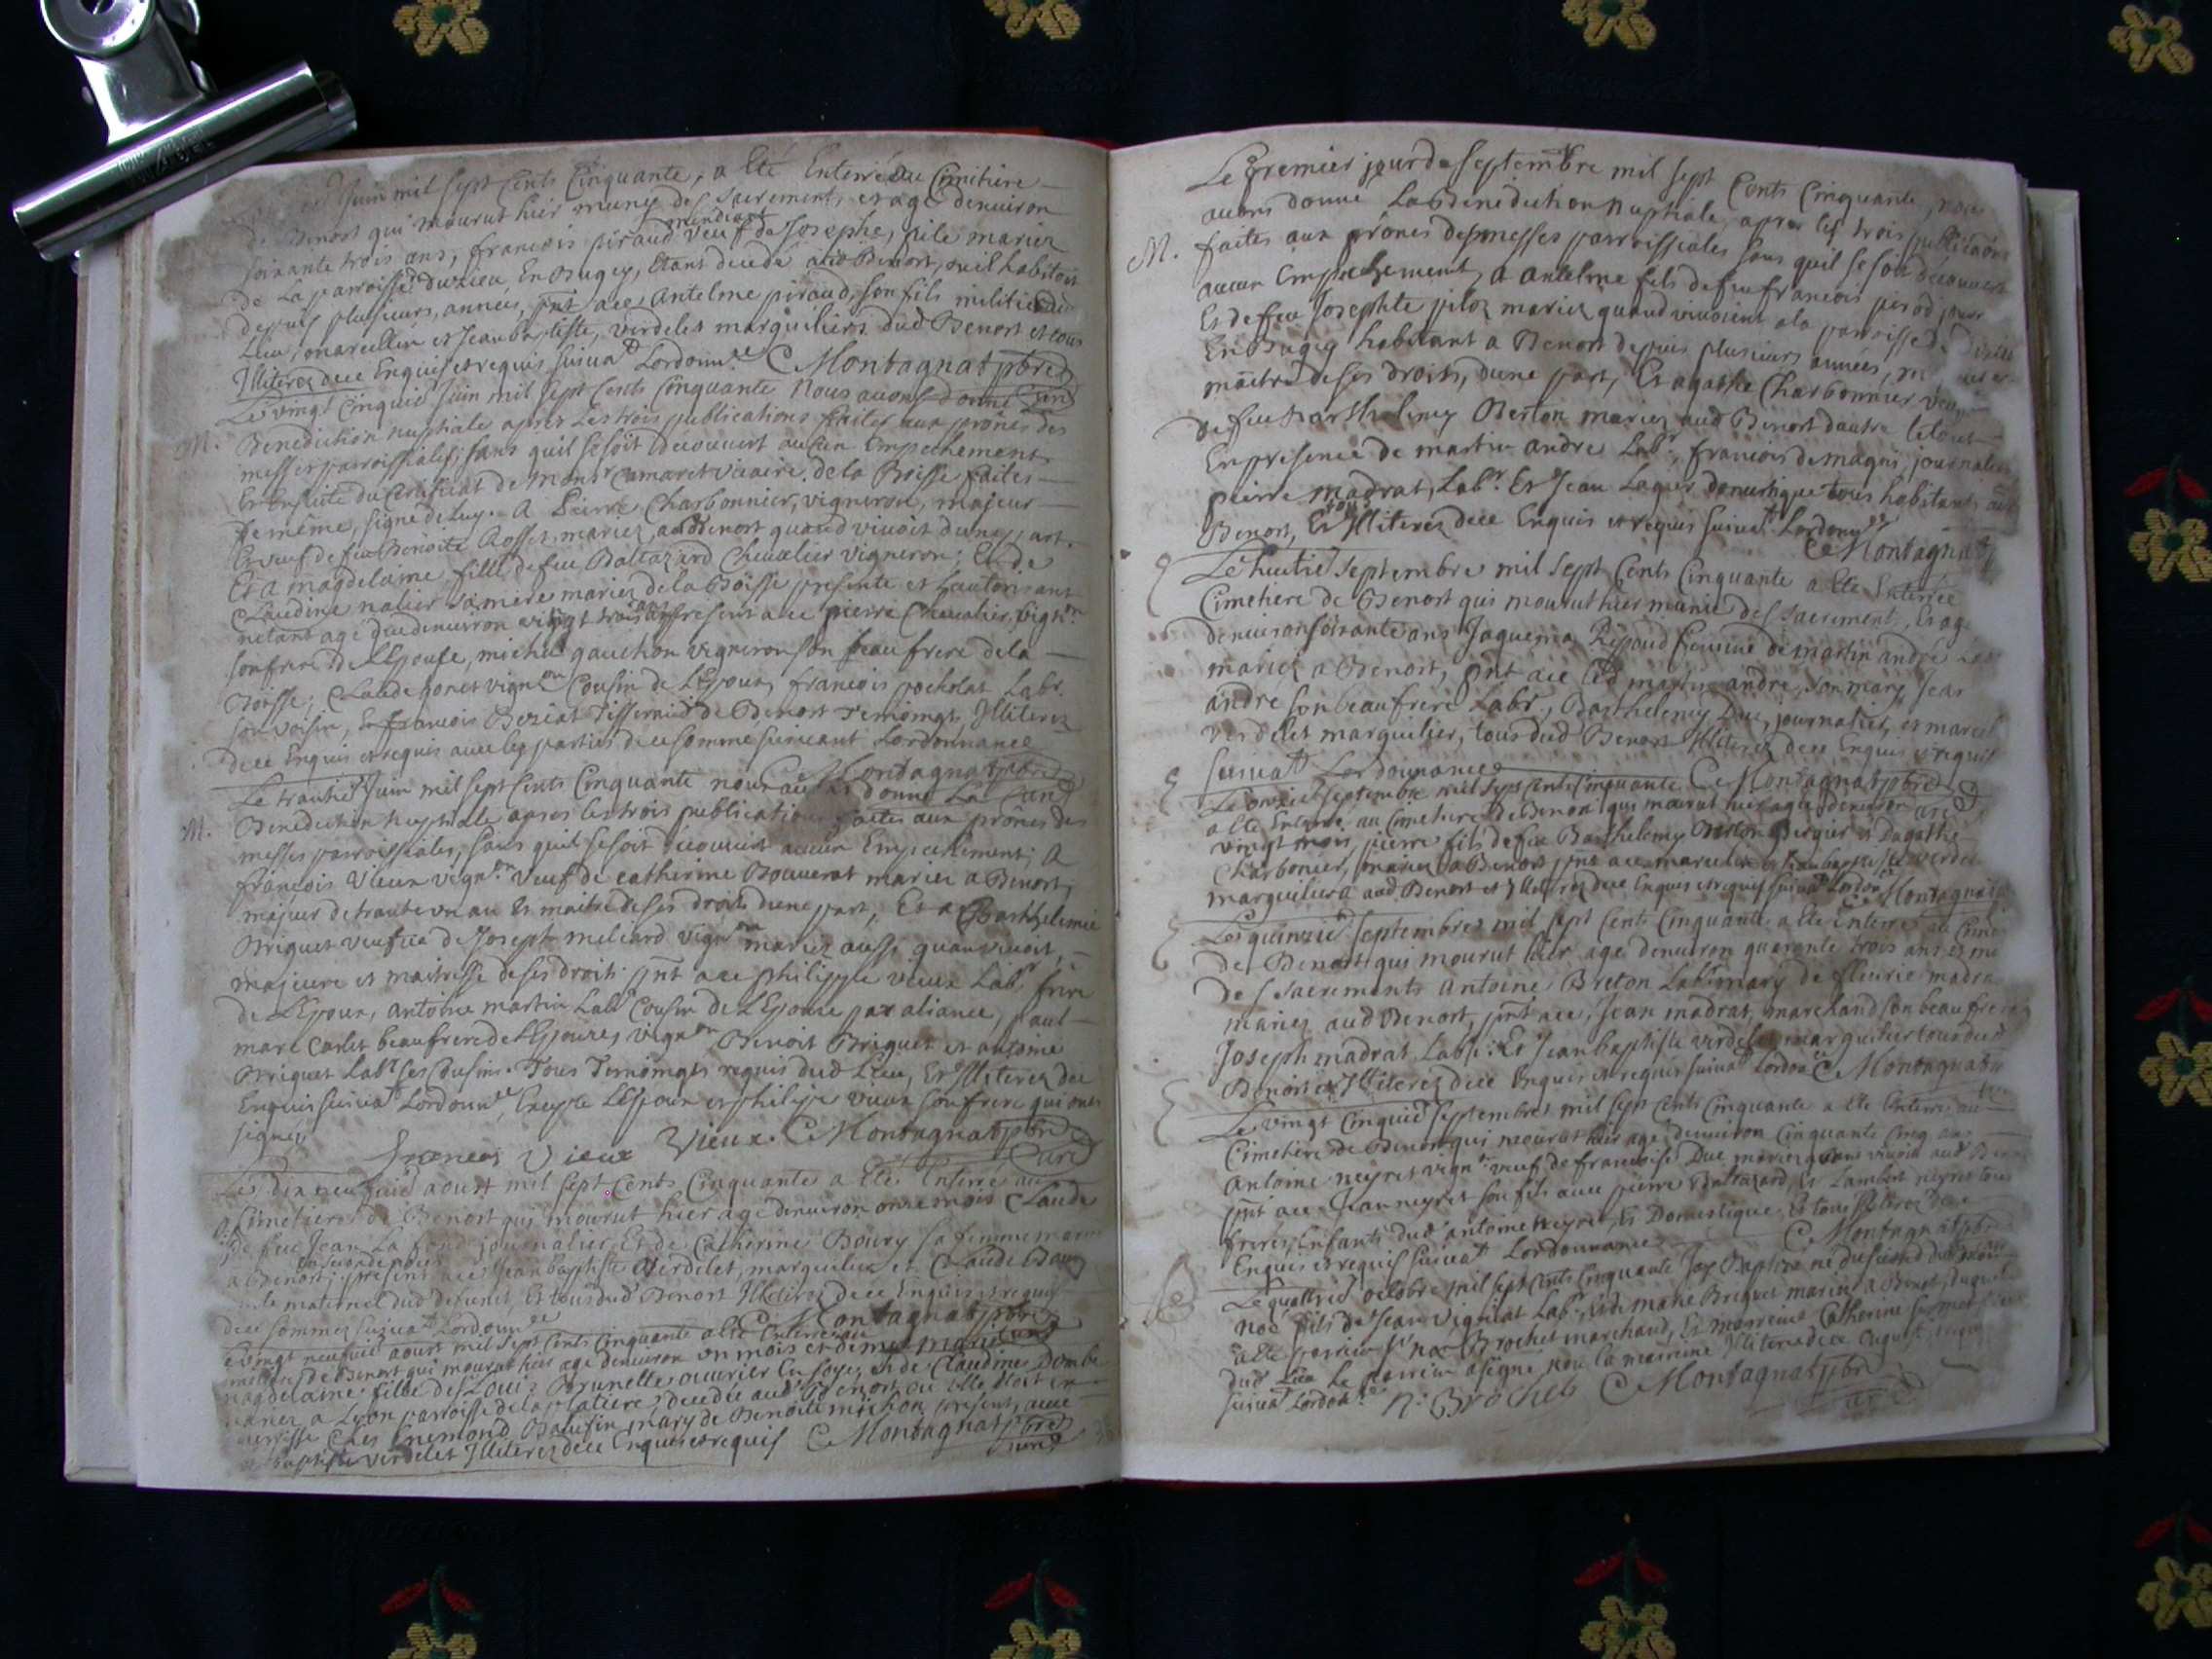 Juin mil sept Cents Cinquante, a Eté Enterré au Cimitiere
de Benost qui mourut hier muny des sacrements, et agé denuiron
soixante trois ans, francois piraud mendiant veuf de Josephe, pile mariez
de La parroisse En Bugey, Etant decedé aud Benost, ou il habitoit
depuis plusieurs années, pnt auec Antelme piraud, son fils
Lieu, marcellin et Jean baptiste, Verdelet marguiliers dud Benost et tous
Illiterez de ce Enquis et requis suiuat Lordonnce CMontagnat pbre
Curé
Le vingt Cinquie Juin mil sept Cents Cinquante Nous auons donné La
M. Benediction nuptiale apres Les trois publications faites aux prônes des
messes parroissiales, sans quil se soit decouuert aucun Empechement
Et En suite du Certificat de Monsr Camaret vicaire de la Boisse faites
de même, signé de Luy. A Pierre Charbonnier, vigneron, majeur
Et veuf de feu Benoite Rosset mariez, aud Benost quand viuoit dune part.
Et a magdelaine fille de feu Baltazard Cheualier vigneron, Et de
Claudine nalier sa mère mariez de la Boisse presente et Lautorisant
netant agé que denuiron vingt trois ans presens auec pierre Cheualier, vignon
son frere de LEpouse, michel gauthon vigneron son beau frere de la
Boisse; Claude ponet vignon Cousin de LEpoux, francois pochelat Labr.
son voisin, Et francois Beriat Tisserand de Benost Temoings Illiterez
de ce Enquis et requis auec les parties de ce sommé suiuant Lordonnance
CMontagnat pbre
Curé
Le trantie Juin mil sept Cents Cinquante nous auons donné La
M. Benediction Nuptiale apres les trois publications faites aux prônes des
messes parroissiales, sans quil se soit decouuert aucun Empechement; A
francois Vieux vignon veuf de catherine Bouuerat mariez a Benost,
majeur de trante un an Et maitre de ses droits dune part, Et a Barthelemie
Briguet veufue de Joseph meliard vignon mariez aussi quan viuoit,
majeure et maitresse de ses droits pnt auec philippe vieux Labr frere
de LEpoux, antoine martin Labr Cousin de LEpouse par aliance, paul
marc Carlet beaufrere de LEpouse, vignon Benoit Briguet et antoine
Briguet Labr ses Cousins. Tous Temoings requis dud Lieu, Et Illiterez de ce
Enquis suiuat Lordonnce, Excepte LEpoux et philipe vieux son frere qui ont
signéz
francois Vieux Vieux. CMontagnat pbre
Curé
Le dix neufuie aoust mil sept Cents Cinquante a Eté Enterré au
Cimetiere de Benost qui mourut hier agé denuiron onze mois Claude
de feu Jean La fond journalier Et de Catherine Boüry sa femme
a Benost, present auec Jean baptiste Verdelet, marguilier et Claude
maternel dud defunct, Et tous dud Benost Illiterez de ce Enquis et requis
de ce sommez suiuat Lordonnce CMontagnat pbre
Curé
Le vingt neufuie aoust mil sept Cents Cinquante a Eté Enterrée au
de Benost qui mourut hier agé denuiron un mois et demy marie
magdelaine fille de Louis Brunelle ouurier En soye, et de Claudine Dombe
mariez a Lyon parroisse de la platiere, decedée aud Benost, ou Elle Etoit en
Chez Enemond Baluffin mary de Benoite michon present, auec
baptiste verdelet Illiterez de ce Enquis et requis CMontagnat pbre
Curé
Le premier jour de septembre mil sept Cents Cinquante, nous
auons donné La Benediction Nuptiale, apres les trois publications
M. faites aux prônes des messes parroissiales sans quil se soit decouuert
aucun Empechement, a antelme fils de feu francois
Et de feu Josephte piloz mariez quand viuoient a la parroisse de
En Bugey habitant a Benost depuis plusieurs années,
maitre de ses droits, dune part, Et agathe Charbonnier
de feu Barthelemy Berton mariez aud Benost dautre le tout
En présence de martin andré Labr., francois demagni, journalier
pierre madrat, Labr. Et Jean Lager domestique tous habitants aud
Benost, Et tous Illiterez de ce Enquis et requis suiuat Lordonnce
CMontagnat
Le huitie septembre mil sept Cents Cinquante a Eté Enterrée
Cimetiere de Benost qui mourut hier munie des sacrement, Et ag
denuiron soixante ans Jaquema Repoud femme de martin andré Lab
mariez a Benost, pnt auec Led martin andré, son mary Jean
andré son beau frere Labr., Barthelemy Duc, journalier, et marcel
verdelet marguilier, tous dud Benost Illiterez de ce Enquis et requis
suiuat Lordonnance CMontagnat pbre
Curé
Le onzie septembre mil sept Cents Cinquante
a Eté Enterré au Cimetiere de Benost qui mourut hier agé denuiron
vingt mois, pierre fils de feu Barthelemy Berton Bergier et Dagathe
Charbonier, mariez a Benost pnt auec marcelin et Jean baptiste verdelet
marguiliers aud. Benost et Illiterez de ce Enquis et requis suiuat Lordonce CMontagnat
Le quinzie septembre mil sept Cents Cinquante a Eté Enterré au Cime
de Benost qui mourut hier agé denuiron quarente trois ans et mu
des sacrements Antoine Breton Labr mary de fleurie madra
mariez aud Benost, pnt auec, Jean madrat, marchand son beau frere
Joseph madrat Labr: Et Jean baptiste verdelet marguilier tous dud
Benost et Illiterez de ce Enquis et requis suiuat Lordonce CMontagnat
Le vingt Cinquie septembre mil sept Cents Cinquante a Eté Enterré au
Cimetiere de Benost qui mourut hier agé denuiron Cinquante Cinq ans
antoine neyret vignon veuf de francoise Duc mariez quans viuoit aud Benost
pnt auec Jean neyret son fils auec pierre Baltazard, Et Lambert neyret tous
freres Enfants dud antoine neyret, Et Domestique, Et tous Illiterez de ce
Enquis et requis suiuat Lordonnance CMontagnat pbre
Le quattrie octobre mil sept Cents Cinquante Jay Baptisé né du
noé fils de Jean Vignat Labr, Et de marie Breguet mariez a Benost, duquel
a Eté parrein sr noe Brochet marchand, Et marreine Catherine
dud Lieu Le parrein a signé non la marreine Illiterée de ce Enquise
suiuat Lordonce N: Brochet CMontagnat pbre
Curé